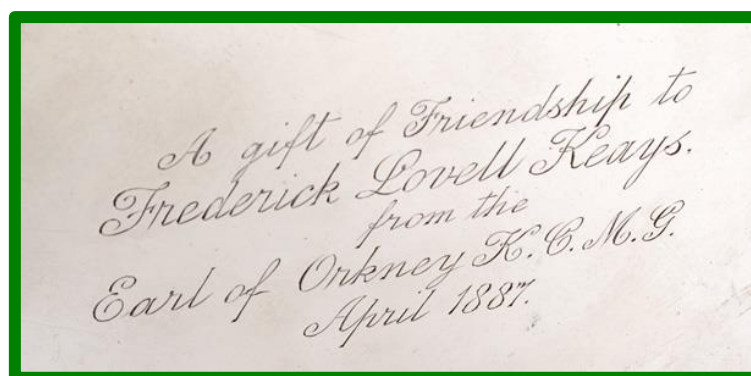 A gift of Friendship to
Frederick Lovell Keays.
from the
Earl of Orkney K.C.M.G.
April 1887.